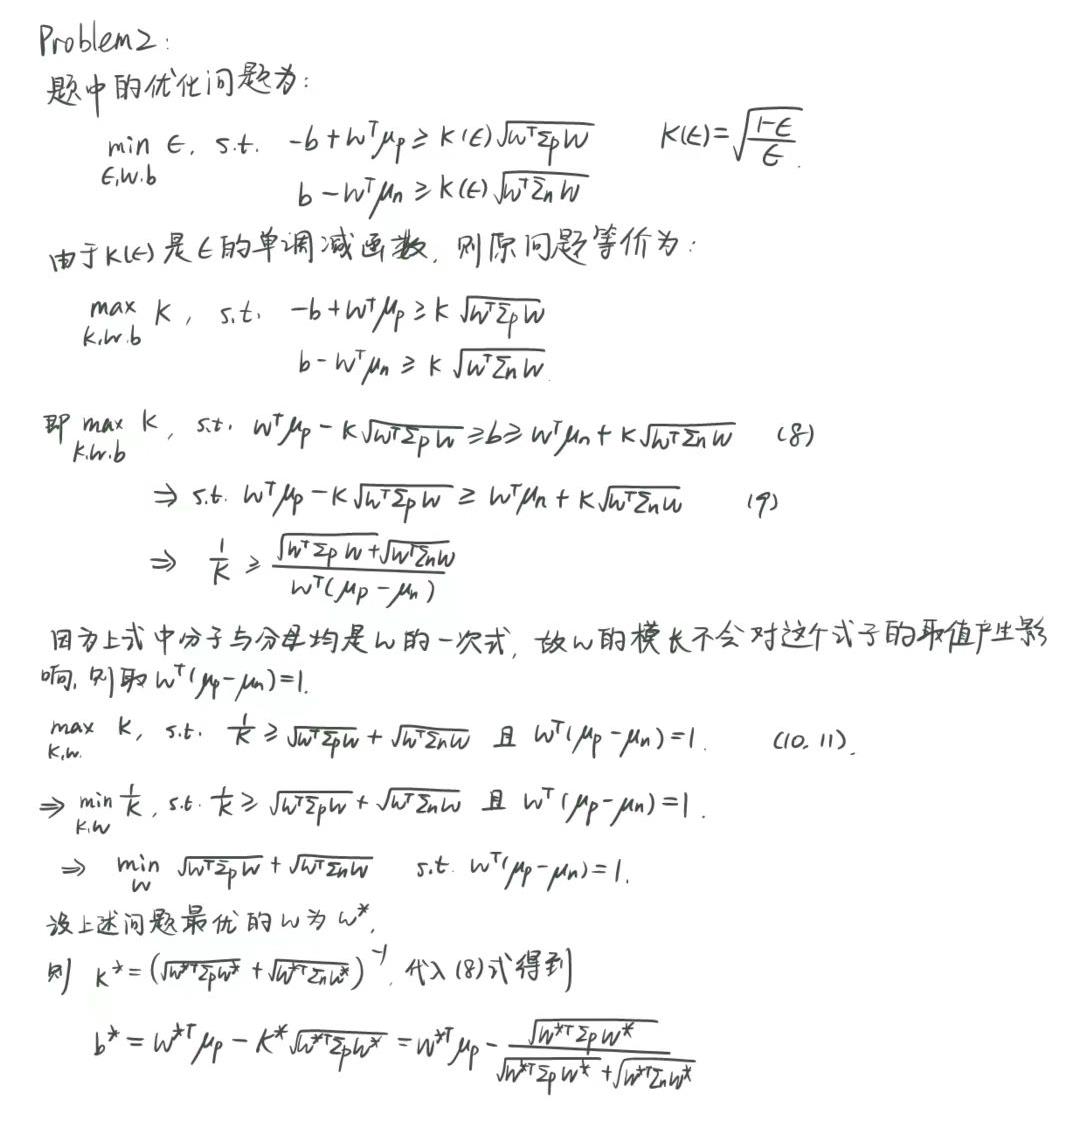 Problem2:
题中的优化问题为:
min ε, s.t. -b+wᵀμp ≥ K(ε)√(wᵀΣp w)  K(ε)=√((1-ε)/ε).
ε,w.b  b-wᵀμn ≥ K(ε)√(wᵀΣn w)
由于K(ε)是ε的单调减函数,则原问题等价为:
max K, s.t. -b+wᵀμp ≥ K√(wᵀΣp w)
K,w.b  b-wᵀμn ≥ K√(wᵀΣn w)
即 max K, s.t. wᵀμp - K√(wᵀΣp w) ≥ b ≥ wᵀμn + K√(wᵀΣn w) (8)
K.w.b
⇒ s.t. wᵀμp - K√(wᵀΣp w) ≥ wᵀμn + K√(wᵀΣn w) (9)
⇒ 1/K ≥ (√(wᵀΣp w)+√(wᵀΣn w))/(wᵀ(μp-μn))
因为上式中分子与分母均是w的一次式,故w的模长不会对这个式子的取值产生影
响,则取wᵀ(μp-μn)=1.
max K, s.t. 1/K ≥ √(wᵀΣp w) + √(wᵀΣn w) 且 wᵀ(μp-μn)=1. (10, 11).
K,w.
⇒ min 1/K, s.t. 1/K ≥ √(wᵀΣp w) + √(wᵀΣn w) 且 wᵀ(μp-μn)=1.
K,w
⇒ min √(wᵀΣp w) + √(wᵀΣn w) s.t. wᵀ(μp-μn)=1.
w
设上述问题最优的w为w*,
则 K*=(√(w*ᵀΣp w*) + √(w*ᵀΣn w*))⁻¹, 代入(8)式得到
b* = w*ᵀμp - K*√(w*ᵀΣp w*) = w*ᵀμp - √(w*ᵀΣp w*)/(√(w*ᵀΣp w*) + √(w*ᵀΣn w*))